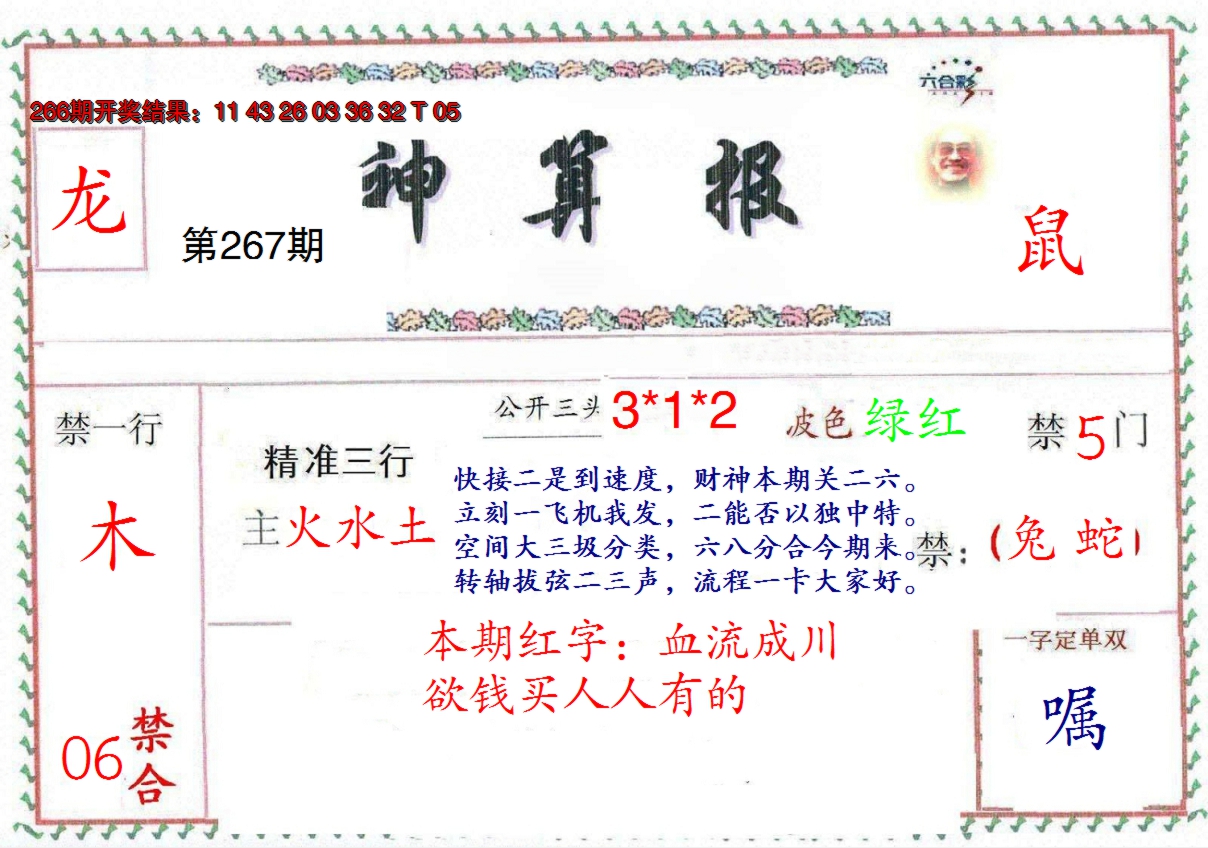 六合彩
266期开奖结果：11 43 26 03 36 32 T 05
神算报
龙
第267期
鼠
禁一行
木
06
禁合
精准三行
主火水土
公开三头
3*1*2
波色 绿红
禁5门
快接二是到速度，财神本期关二六。
立刻一飞机我发，二能否以独中特。
空间大三圾分类，六八分合今期来。
转轴拔弦二三声，流程一卡大家好。
禁：（兔 蛇）
本期红字：血流成川
欲钱买人人有的
一字定单双
嘱